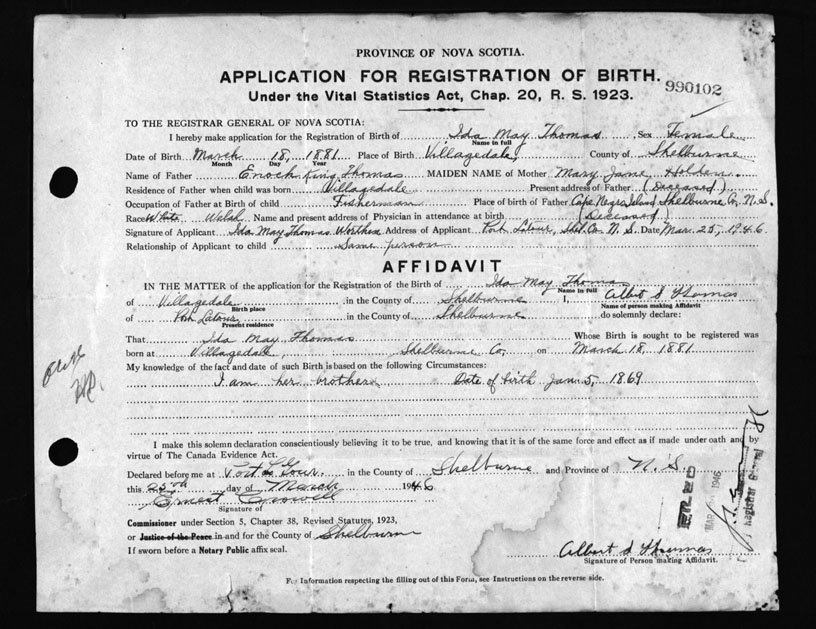 PROVINCE OF NOVA SCOTIA.
APPLICATION FOR REGISTRATION OF BIRTH.
990102
Under the Vital Statistics Act, Chap. 20, R. S. 1923.
TO THE REGISTRAR GENERAL OF NOVA SCOTIA:
I hereby make application for the Registration of Birth of Ida May Thomas, Sex Female
Name in full
Date of Birth March 18, 1881 Place of Birth Villagedale, County of Shelburne
Month Day Year
Name of Father Enoch King Thomas MAIDEN NAME of Mother Mary Jane Holden
Residence of Father when child was born Villagedale Present address of Father (Deceased)
Occupation of Father at Birth of child Fisherman Place of birth of Father Cape Negro Island Shelburne Co. N. S.
Race White Welsh Name and present address of Physician in attendance at birth (Deceased)
Signature of Applicant Ida May Thomas Worthen Address of Applicant Port Latour, Shel. Co. N. S. Date Mar. 25, 1946
Relationship of Applicant to child Same person
AFFIDAVIT
IN THE MATTER of the application for the Registration of the Birth of Ida May Thomas
Name in full
of Villagedale in the County of Shelburne I, Albert S Thomas
Birth place Name of person making Affidavit
of Port Latour in the County of Shelburne do solemnly declare:
Present residence
That Ida May Thomas Whose Birth is sought to be registered was
born at Villagedale, Shelburne Co, on March 18, 1881
My knowledge of the fact and date of such Birth is based on the following Circumstances:
I am her brother Date of birth Jan 5, 1869
I make this solemn declaration conscientiously believing it to be true, and knowing that it is of the same force and effect as if made under oath and by
virtue of The Canada Evidence Act.
Declared before me at Port La Tour in the County of Shelburne and Province of N. S.
this 25th day of March 1946
Ernest
Signature of
Commissioner under Section 5, Chapter 38, Revised Statutes, 1923,
or Justice of the Peace in and for the County of Shelburne
If sworn before a Notary Public affix seal.
FILED
MAR 1946
Registrar General
Albert S Thomas
Signature of Person making Affidavit.
For Information respecting the filling out of this Form, see Instructions on the reverse side.